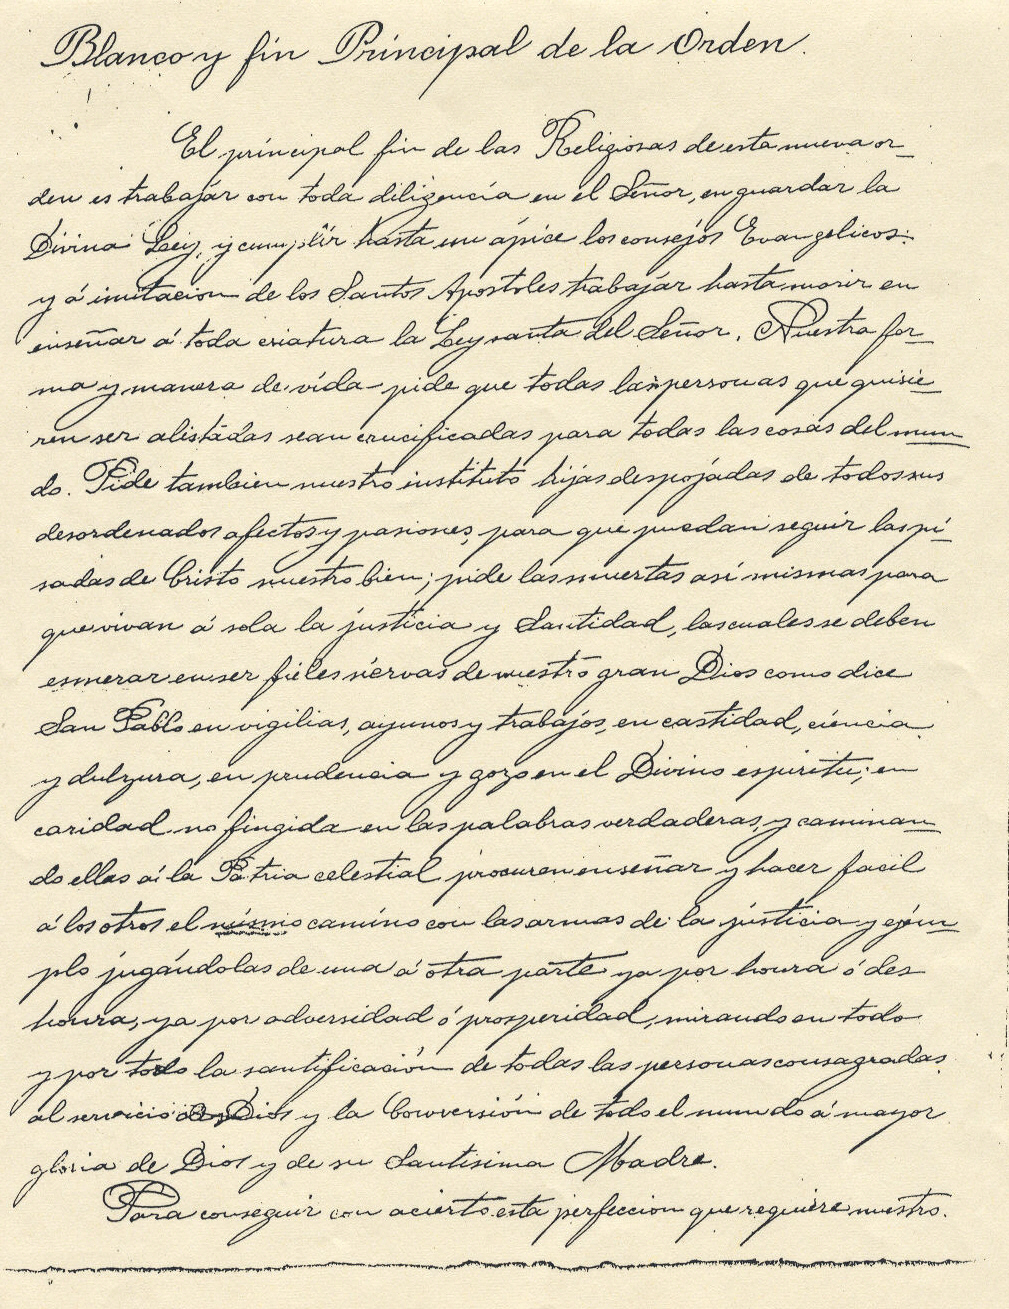 Blanco y fin Principal de la Orden.
El principal fin de las Religiosas de esta nueva or_
den es trabajar con toda diligencia en el Señor, en guardar la
Divina Ley, y cumplir hasta un ápice los consejos Evangelicos:
y á imitacion de los Santos Apostoles trabajar hasta morir en
enseñar á toda criatura la Ley santa del Señor. Nuestra for_
ma y manera de vida pide que todas las personas que quisie_
ren ser alistadas sean crucificadas para todas las cosas del mun_
do. Pide tambien nuestro instituto hijas despojadas de todos sus
desordenados afectos y pasiones, para que puedan seguir las pi_
sadas de Cristo nuestro bien; pide las muertas asi mismas para
que vivan á sola la justicia y Santidad, las cuales se deben
esmerar en ser fieles siervas de nuestro gran Dios como dice
San Pablo en vigilias, ayunos y trabajos, en castidad, ciencia
y dulzura, en prudencia y gozo en el Divino espiritu; en
caridad no fingida en las palabras verdaderas, y caminan_
do ellas á la Patria celestial procuren enseñar y hacer facil
á los otros el mismo camino con las armas de la justicia y ejem_
plo jugándolas de una á otra parte ya por honra ó des
honra, ya por adversidad ó prosperidad, mirando en todo
y por todo la santificación de todas las personas consagradas
al servicio de Dios y la Conversión de todo el mundo á mayor
gloria de Dios y de su Santisima Madre.
Para conseguir con acierto esta perfeccion que requiere nuestro.